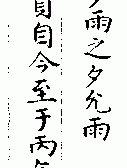 雨之夕允雨
貞自今至于丙